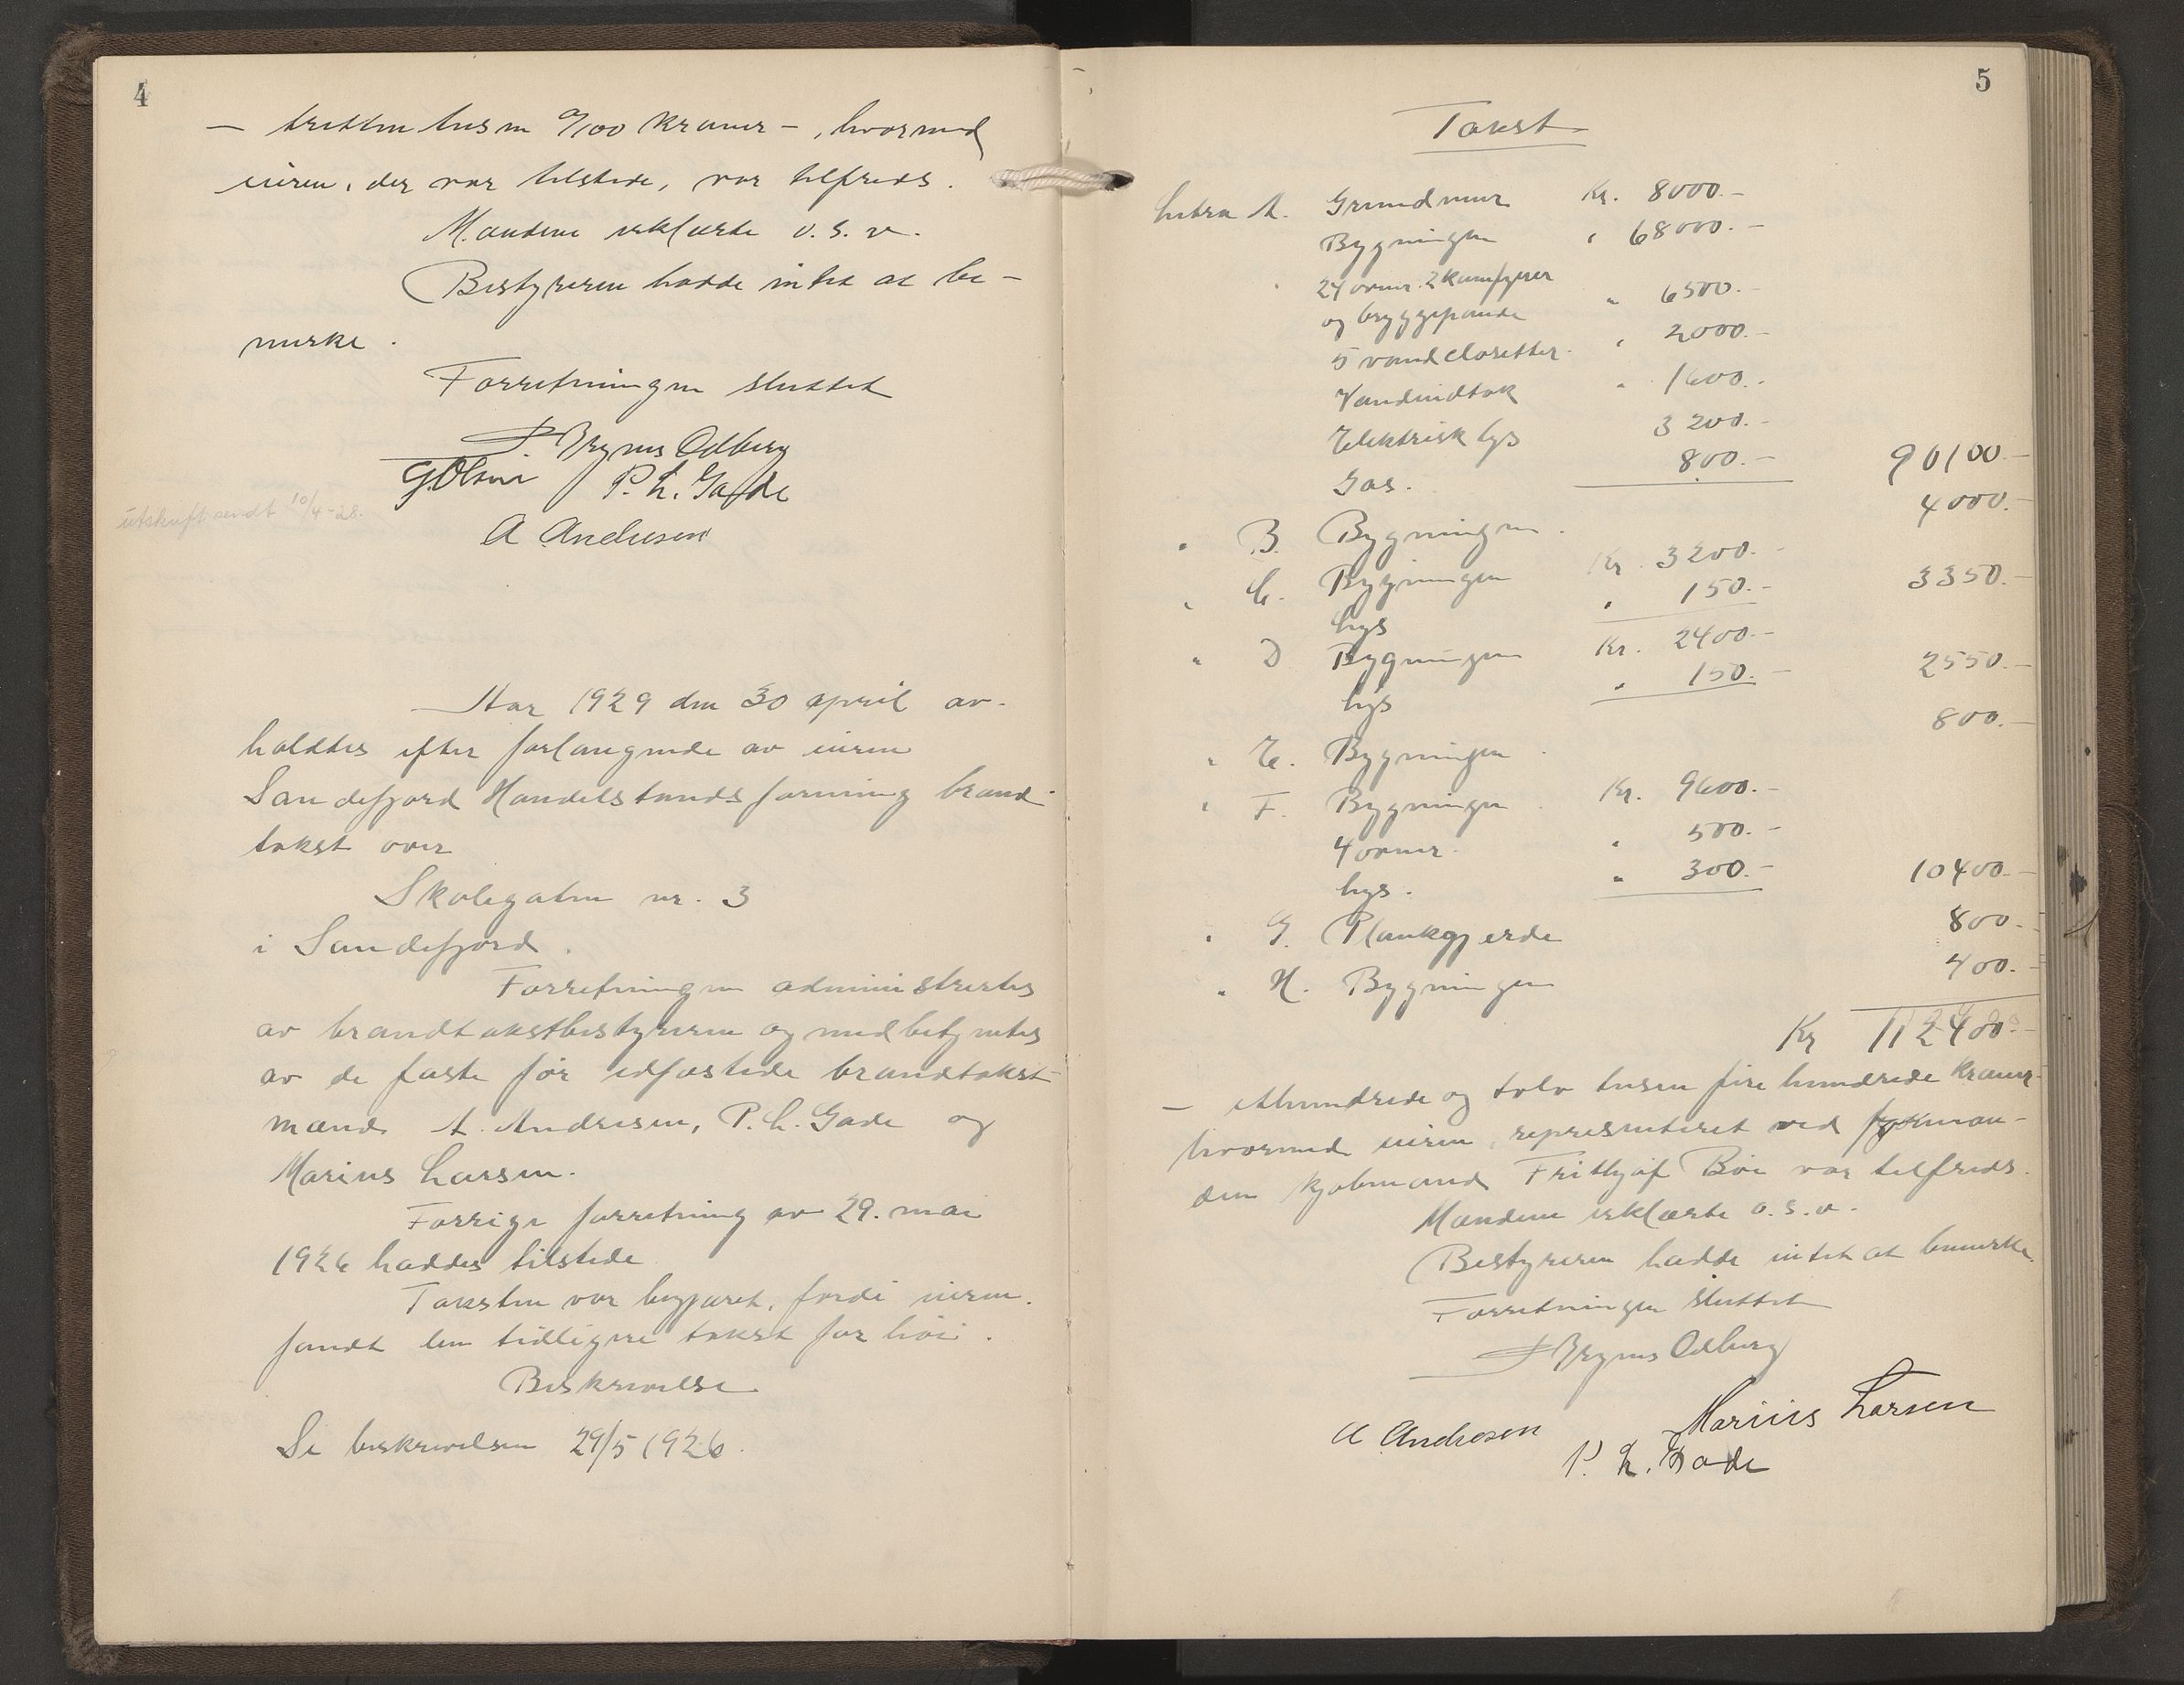 4
— tretten tusen 0/100 kroner —, hvormed
eieren, der var tilstede, var tilfreds.
Mændene erklærte o. s. v.
Bestyreren hadde intet at be-
merke.
Forretningen sluttet
Odberg
G. Olsen P. L. Gade
A Andresen
utskrift sendt 10/4-28.
Aar 1929 den 30 april av-
holdtes efter forlangende av eieren
Sandefjord Handelstands forening brand-
takst over
Skolegaten nr. 3
i Sandefjord.
Forretningen administrertes
av brandtakstbestyreren og medbetjentes
av de faste før edfæstede brandtakst-
mænd A. Andresen, P. L. Gade og
Marius Larsen.
Forrige forretning av 29. mai
1926 haddes tilstede
Taksten var begjæret, fordi eieren
fandt den tidligere takst for høi.
Beskrivelse
Se beskrivelsen 29/5 1926.
5
Takst
Litra A. Grundmur Kr. 8000.-
Bygningen " 68000.-
24 ovner. 2 komfyrer
og bryggepande " 6500.-
5 vandclosetter " 2000.-
Vandindtak " 1600.-
Elektrisk lys 3200.-
Gas. 800.- 90100.-
" B. Bygningen 4000.-
" C. Bygningen Kr. 3200.-
lys " 150.- 3350.-
" D Bygningen Kr. 2400.-
lys " 150.- 2550.-
" E. Bygningen 800.-
" F. Bygningen Kr. 9600.-
4 ovner " 500.-
lys. " 300.- 10400.-
" G. Plankegjerde 800.-
" H. Bygningen 400.-
Kr 112400.-
— ethundrede og tolv tusen fire hundrede kroner-
hvormed eieren, representeret ved forman-
den kjøbmand Frithjof Bøe var tilfreds.
Mændene erklærte o. s. v.
Bestyreren hadde intet at bemerke.
Forretningen sluttet
Odberg
A Andresen Marius Larsen
P. L. Gade